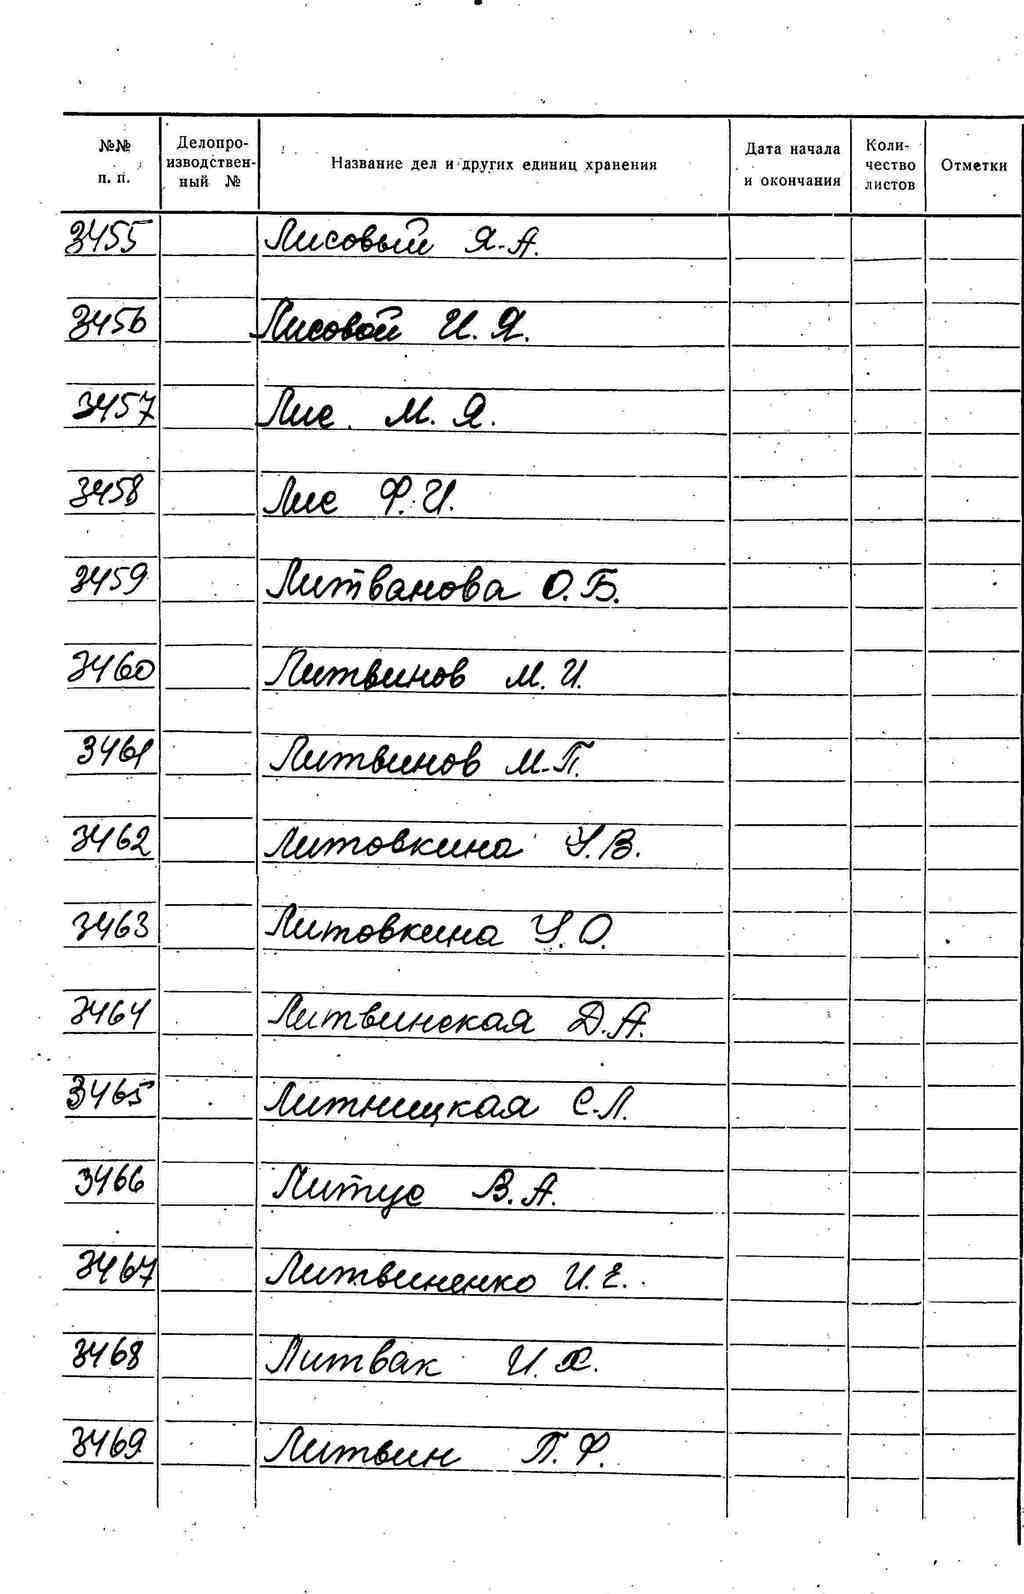 №№ п. п. Делопроизводственный № Название дел и других единиц хранения Дата начала и окончания Количество листов Отметки
3455 Лисовый Я.А.
3456 Лисовой И.Я.
3457 Лис М.Я.
3458 Лис Ф.И.
3459 Литванова О.Б.
3460 Литвинов М.И.
3461 Литвинов М.П.
3462 Литовкина У.В.
3463 Литовкина У.О.
3464 Литвинская Д.А.
3465 Литницкая С.Л.
3466 Литус В.А.
3467 Литвиненко И.Е.
3468 Литвак И.Х.
3469 Литвин П.Ф.